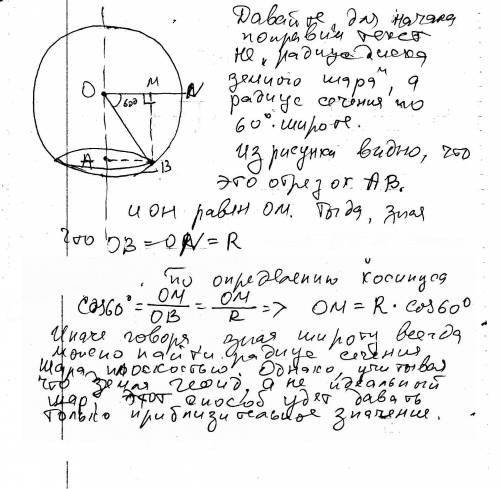 Давайте, для начала
поправим текст
не "радиус диска
земного шара", а
радиус сечения по
60° широте.
Из рисунка видно, что
это отрезок AB,
и он равен OM. Тогда, зная
что OB = ON = R
по определению косинуса
cos60° = OM/OB = OM/R => OM = R · cos60°
Иначе говоря, зная широту всегда
можно найти радиус сечения
шара плоскостью. Однако, учитывая
что земля геоид, а не идеальный
шар, этот способ удет давать
только приблизительное значение.
O
60°
M
N
A
B